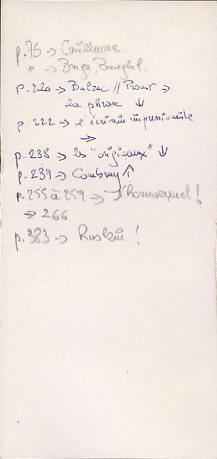 p.75 → Guillaume
" → Bruges, Brueghel.
p.220 → Balzac // Proust →
la phrase ↓
p.222 → l'écrivain impressionniste
→
p.238 → les "originaux" ↓
p.239 → Combray ↑
p.255 à 259 → l'homosexuel !
→ 266
p.383 → Ruskin !